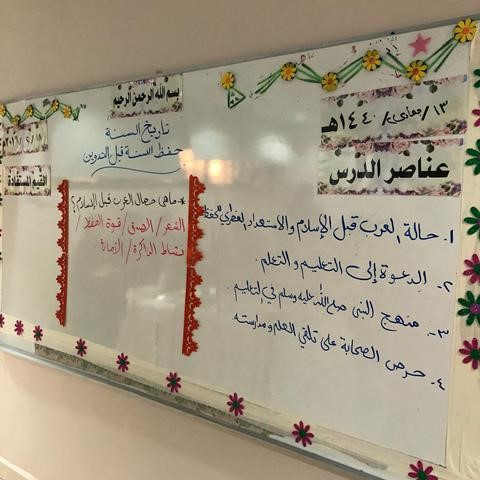 بسم الله الرحمن الرحيم
١٣/جمادى/١٤٤٠هـ
تاريخ السنة
حفظ السنة قبل التدوين
عناصر الدرس
القيم المستفادة
١. حالة العرب قبل الإسلام والاستعداد الفطري للحفظ
٢. الدعوة إلى التعليم والتعلم.
٣- منهج النبي صلى الله عليه وسلم في التعليم.
٤. حرص الصحابة على تلقي العلم ومدارسته
*- ماهي خصال العرب قبل الإسلام؟
الشعر / الصدق / قوة الحفظ /
نشاط الذاكرة / الأمانة